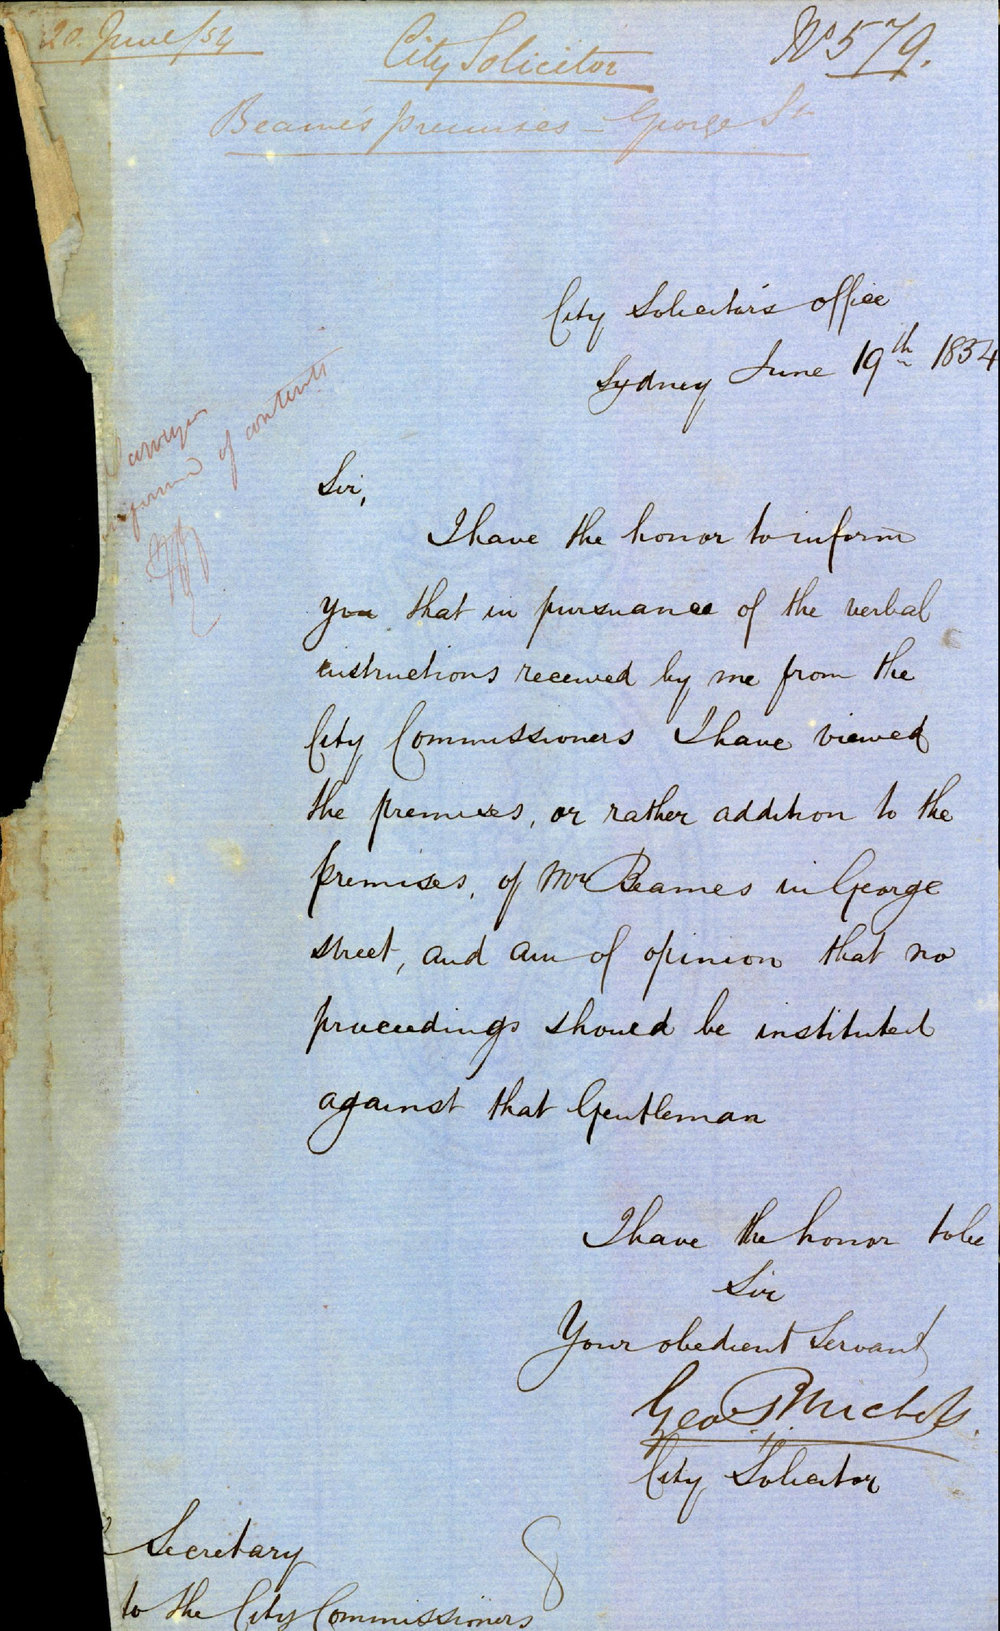 20. June/54
City Solicitor
No 579.
Beame's premises - George St
City Solicitor's office
Sydney June 19th 1854
Surveyor
informed of contents
Sir,
I have the honor to inform
you that in pursuance of the verbal
instructions received by me from the
City Commissioners I have viewed
the premises, or rather addition to the
premises, of Mr Beames in George
street, and am of opinion that no
proceedings should be instituted
against that Gentleman
I have the honor to be
Sir
Your obedient Servant
Geo
City Solicitor
Secretary
to the City Commissioners